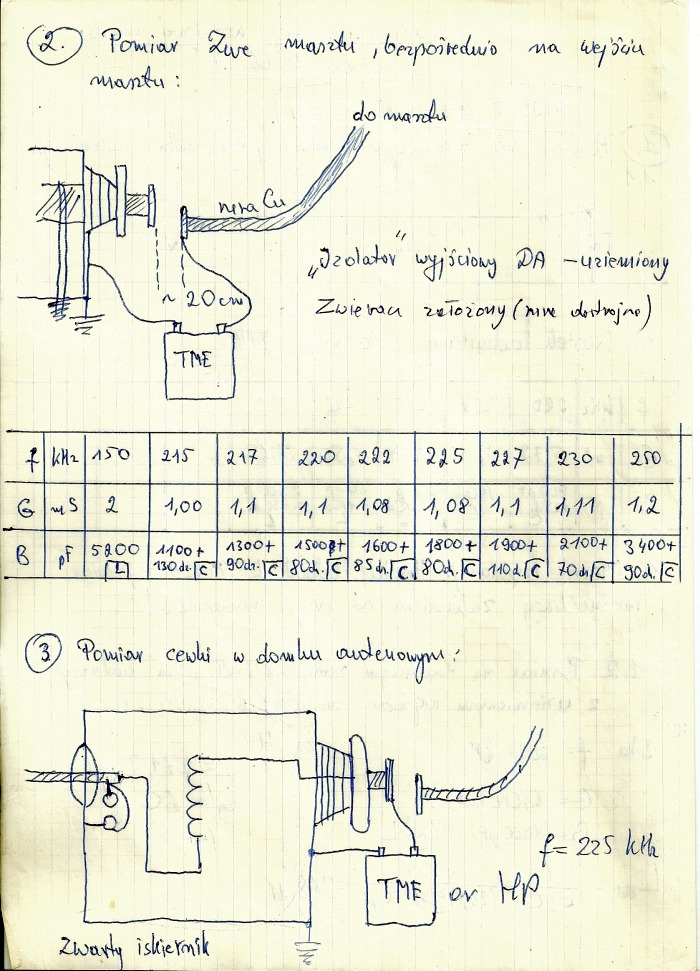 2. Pomiar Zwe masztu, bezpośrednio na wejściu
masztu:
do masztu
rura Cu
„Izolator” wyjściowy DA – uziemiony
Zwieracz założony (nie dostrojne)
~ 20 cm
TME
f kHz 150 215 217 220 222 225 227 230 250
G mS 2 1,00 1,1 1,1 1,08 1,08 1,1 1,11 1,2
B pF 5200 1100+ 1300+ 1500+ 1600+ 1800+ 1900+ 2100+ 3400+
L 130dz. C 90dz. C 80dz. C 85dz. C 80dz. C 110dz. C 70dz. C 90dz. C
3 Pomiar cewki w domku antenowym:
f = 225 kHz
TME or HP
Zwarty iskiernik